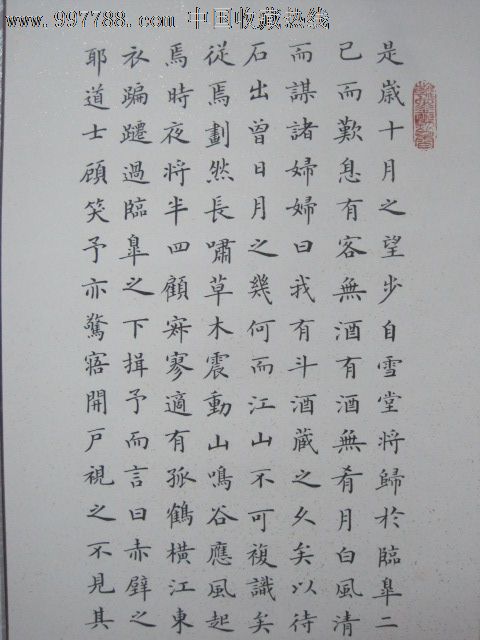 www.997788.com 中国收藏热线
是歲十月之望步自雪堂將歸於臨皐二
已而歎息有客無酒有酒無肴月白風清
而謀諸婦婦曰我有斗酒藏之久矣以待
石出曾日月之幾何而江山不可複識矣
從焉劃然長嘯草木震動山鳴谷應風起
焉時夜將半四顧寂寥適有孤鶴橫江東
衣蹁躚過臨皐之下揖予而言曰赤壁之
耶道士顧笑予亦驚寤開戶視之不見其